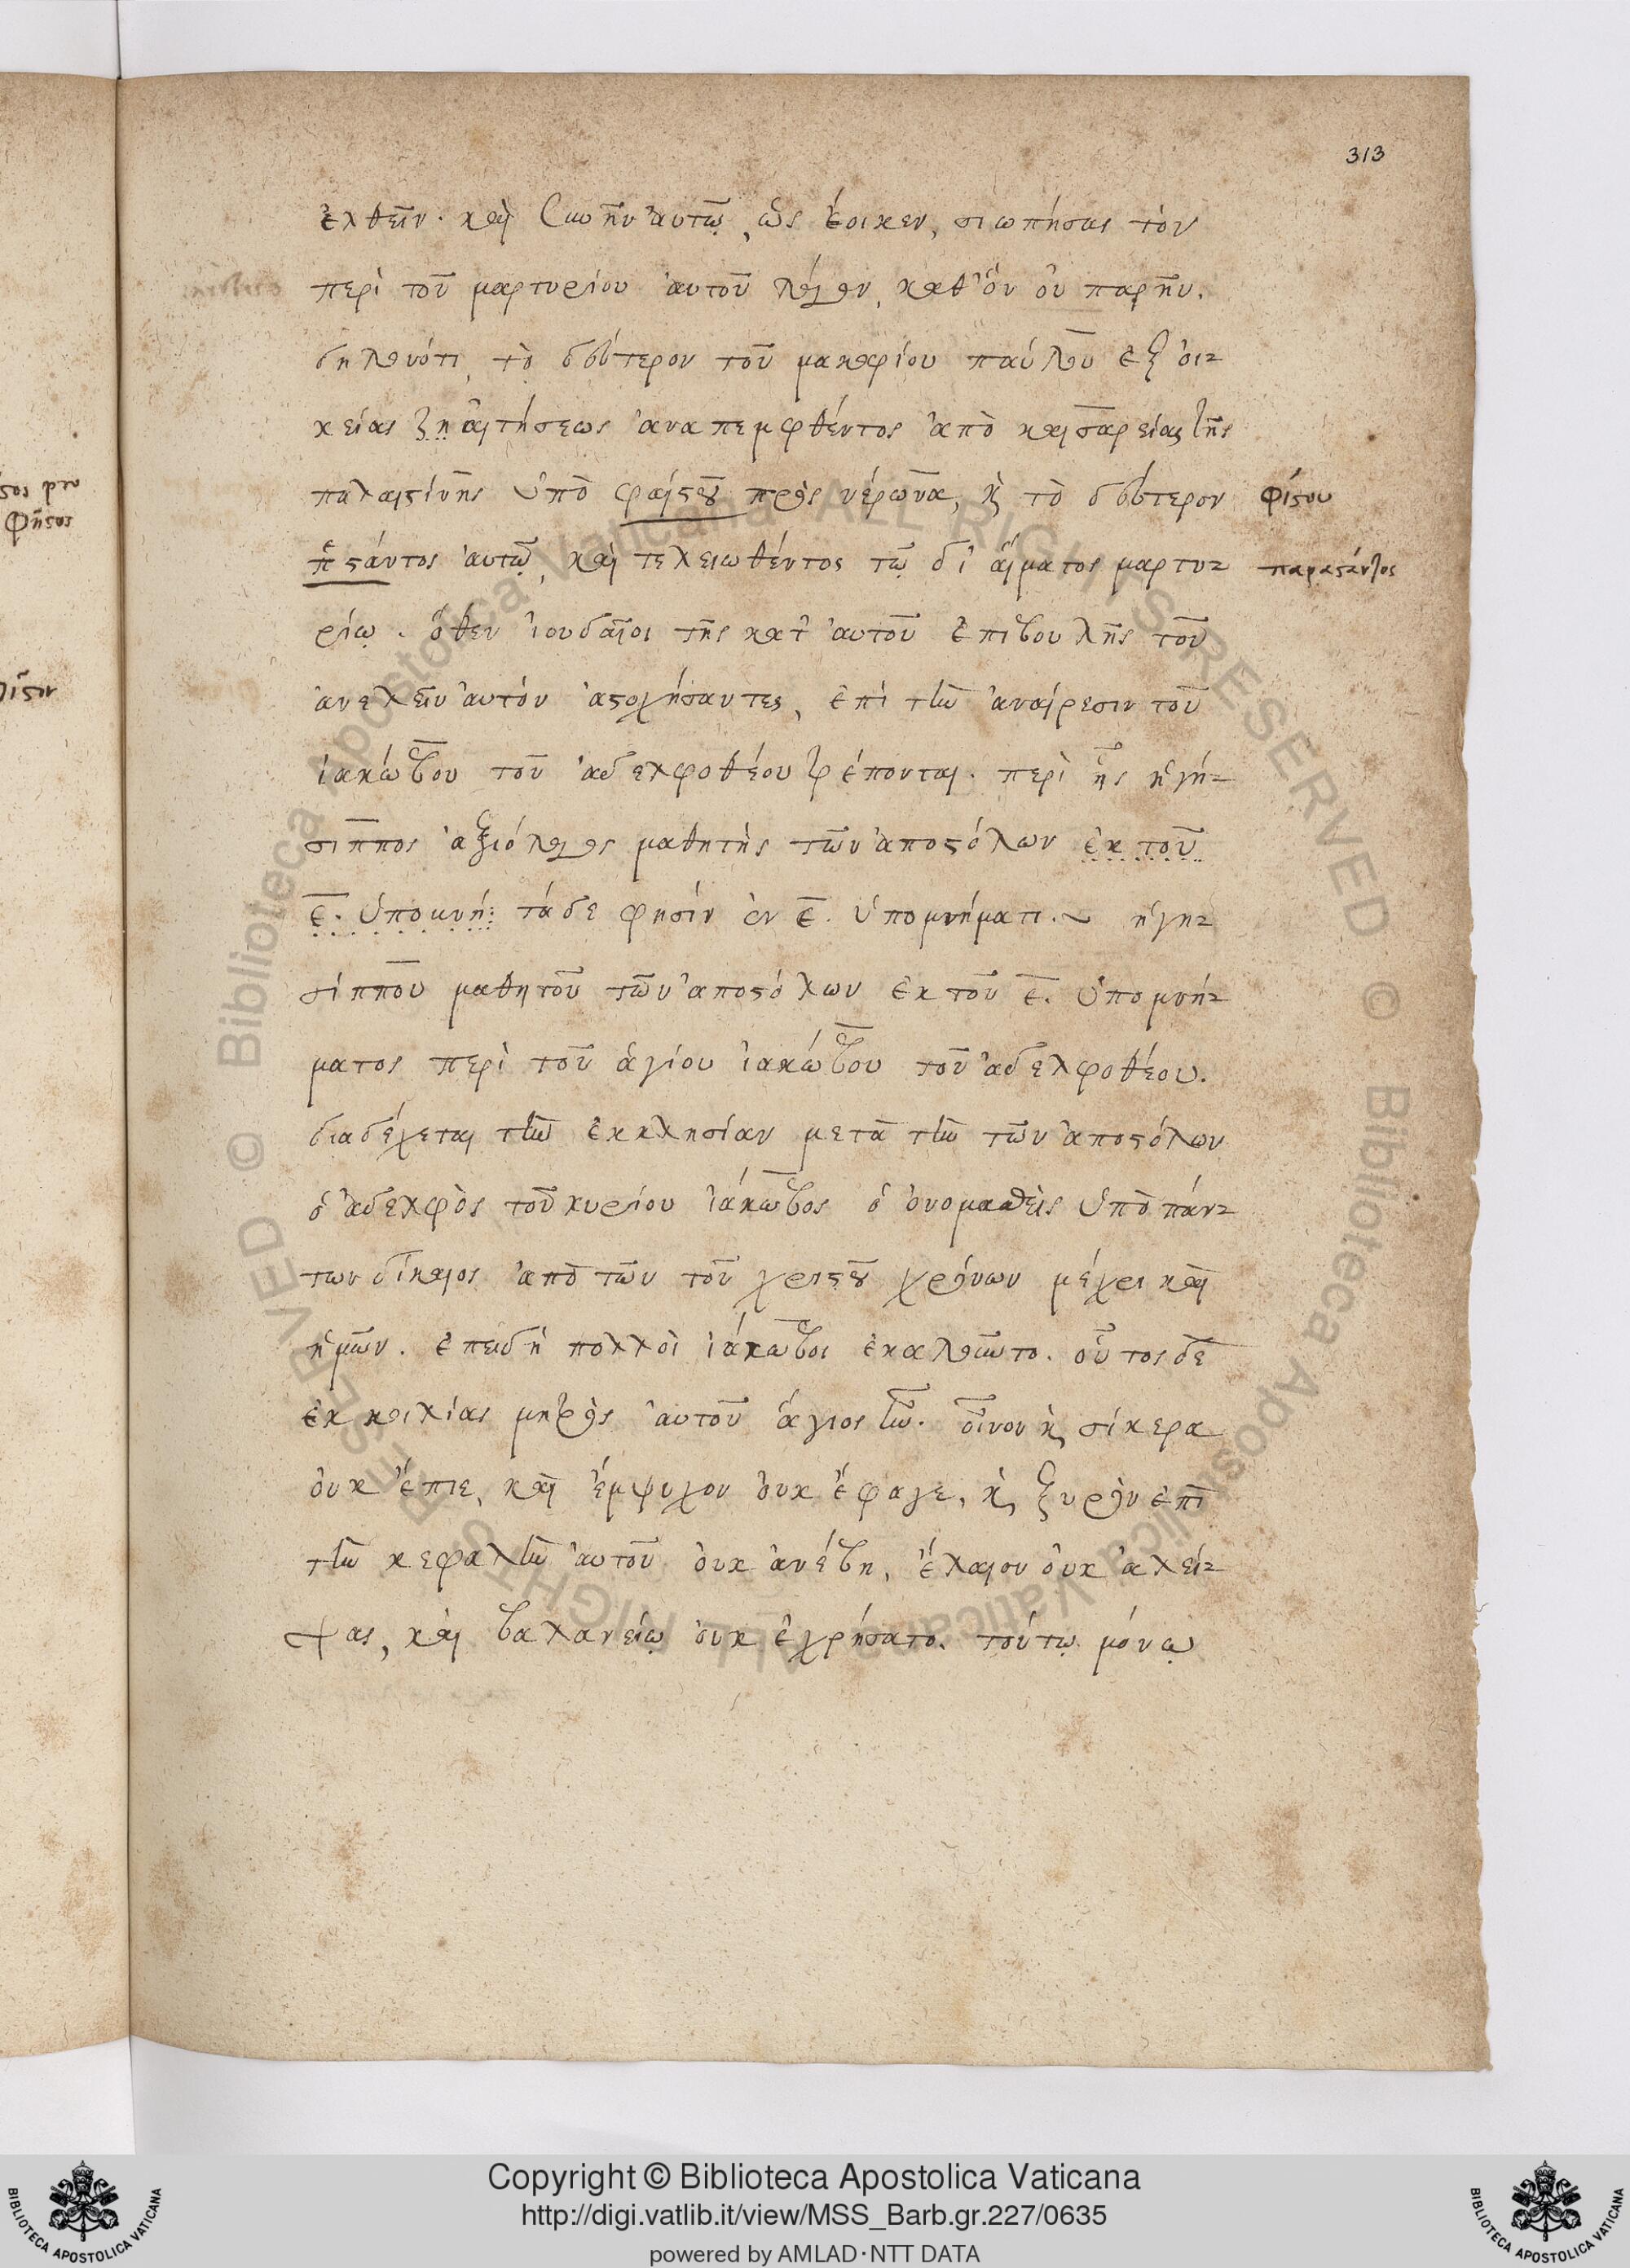 313
ἐλθεῖν. καὶ ζωὴν αὐτῷ, ὡς ἔοικεν, σιωπήσας τὸν
περὶ τοῦ μαρτυρίου αὐτοῦ λόγον, καθ' ὃν οὐ παρῆν.
δηλονότι, τὸ δεύτερον τοῦ μακαρίου παύλου ἐξ οἰ-
κείας ζη αἰτήσεως ἀναπεμφθέντος ἀπὸ καισαρείας τῆς
παλαιστίνης ὑπὸ φαίστου πρὸς νέρωνα, κ τὸ δεύτερον φίστου
στάντος αὐτῷ, καὶ τελειωθέντος τῷ δι' αἵματος μαρτυ- παραστάντος
ρίῳ. ὅθεν ἰουδαῖοι τῆς κατ' αὐτοῦ ἐπιβουλῆς τοῦ
ἀνελεῖν αὐτὸν ἀστοχήσαντες, ἐπὶ τὴν ἀναίρεσιν τοῦ
ἰακώβου τοῦ ἀδελφοθέου τρέπονται. περὶ ἧς ἡγή-
σιππος ἀξιόλογος μαθητὴς τῶν ἀποστόλων ἐκ τοῦ
ε. ὑπομνή: τάδε φησίν ἐν ε. ὑπομνήματι. ~ ἡγη-
σίππου μαθητοῦ τῶν ἀποστόλων ἐκ τοῦ ε. ὑπομνή-
ματος περὶ τοῦ ἁγίου ἰακώβου τοῦ ἀδελφοθέου.
διαδέχεται τὴν ἐκκλησίαν μετὰ τὴν τῶν ἀποστόλων
ὁ ἀδελφὸς τοῦ κυρίου ἰάκωβος ὁ ὀνομαθεὶς ὑπὸ πάν-
των δίκαιος ἀπὸ τῶν τοῦ χριστοῦ χρόνων μέχρι καὶ
ἡμῶν. ἐπειδὴ πολλοὶ ἰάκωβοι ἐκαλοῦντο. οὗτος δὲ
ἐκ κοιλίας μητρὸς αὐτοῦ ἅγιος ἦν. οἶνον κ σίκερα
οὐκ ἔπιε, καὶ ἔμψυχον οὐκ ἔφαγε, κ ξυρὸν ἐπὶ
τὴν κεφαλὴν αὐτοῦ οὐκ ἀνέβη, ἔλαιον οὐκ ἀλεί-
ψας, καὶ βαλανείῳ οὐκ ἐχρήσατο. τούτῳ μόνῳ
Copyright © Biblioteca Apostolica Vaticana
http://digi.vatlib.it/view/MSS_Barb.gr.227/0635
powered by AMLAD·NTT DATA